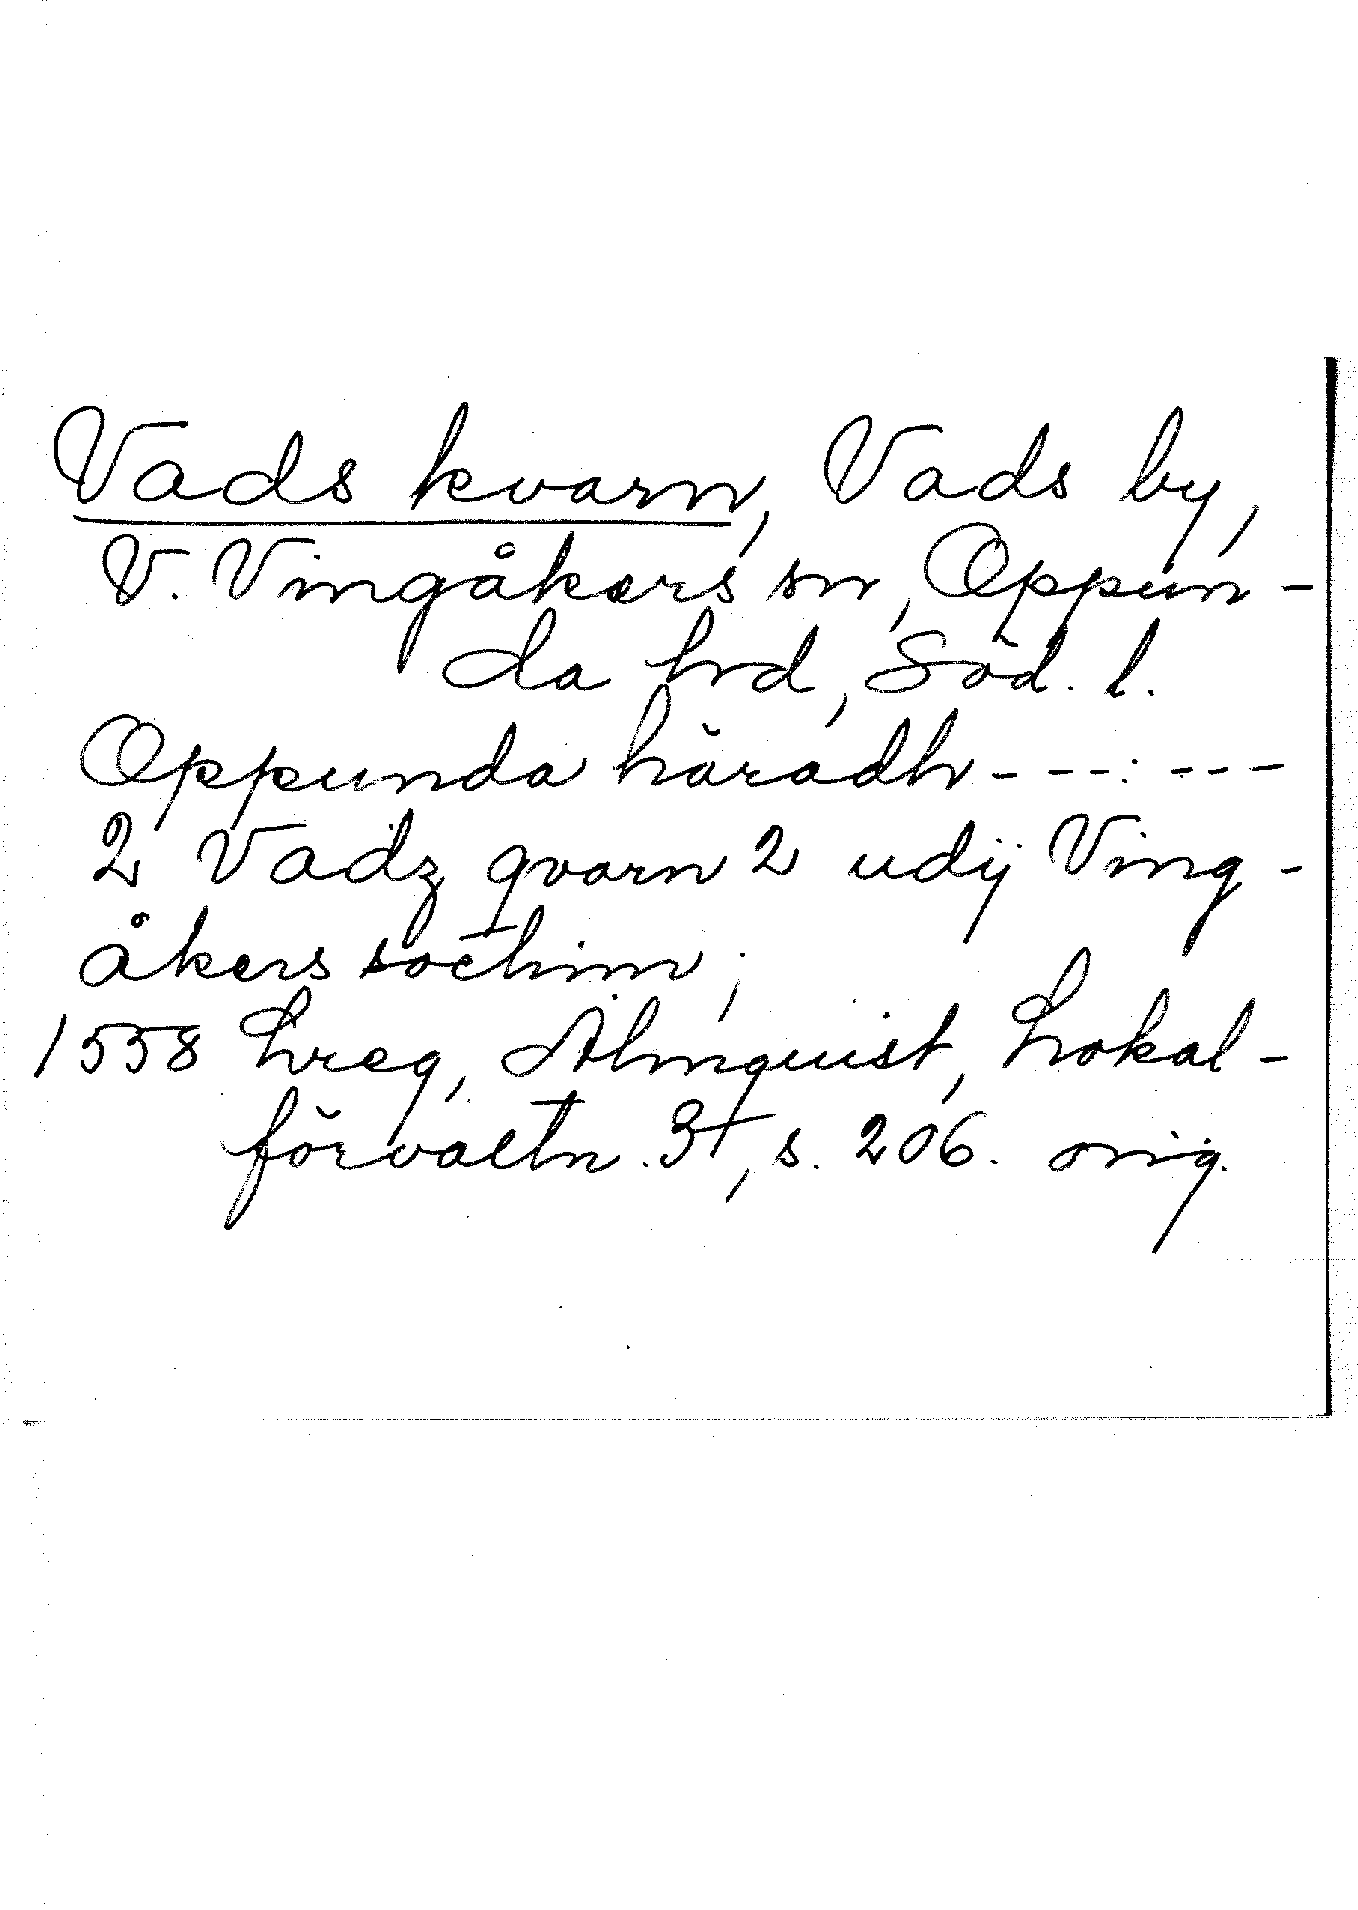 Vads kvarn, Vads by,
V. Vingåkers sn, Oppun-
da hrd, Söd. l.
Oppunda häradh - - - - : - - - -
2 Vadz qvarn 2 udij Ving-
åkers sochnn;
1558 Lreg, Almquist, Lokal-
förvaltn. 3, s. 206. orig.